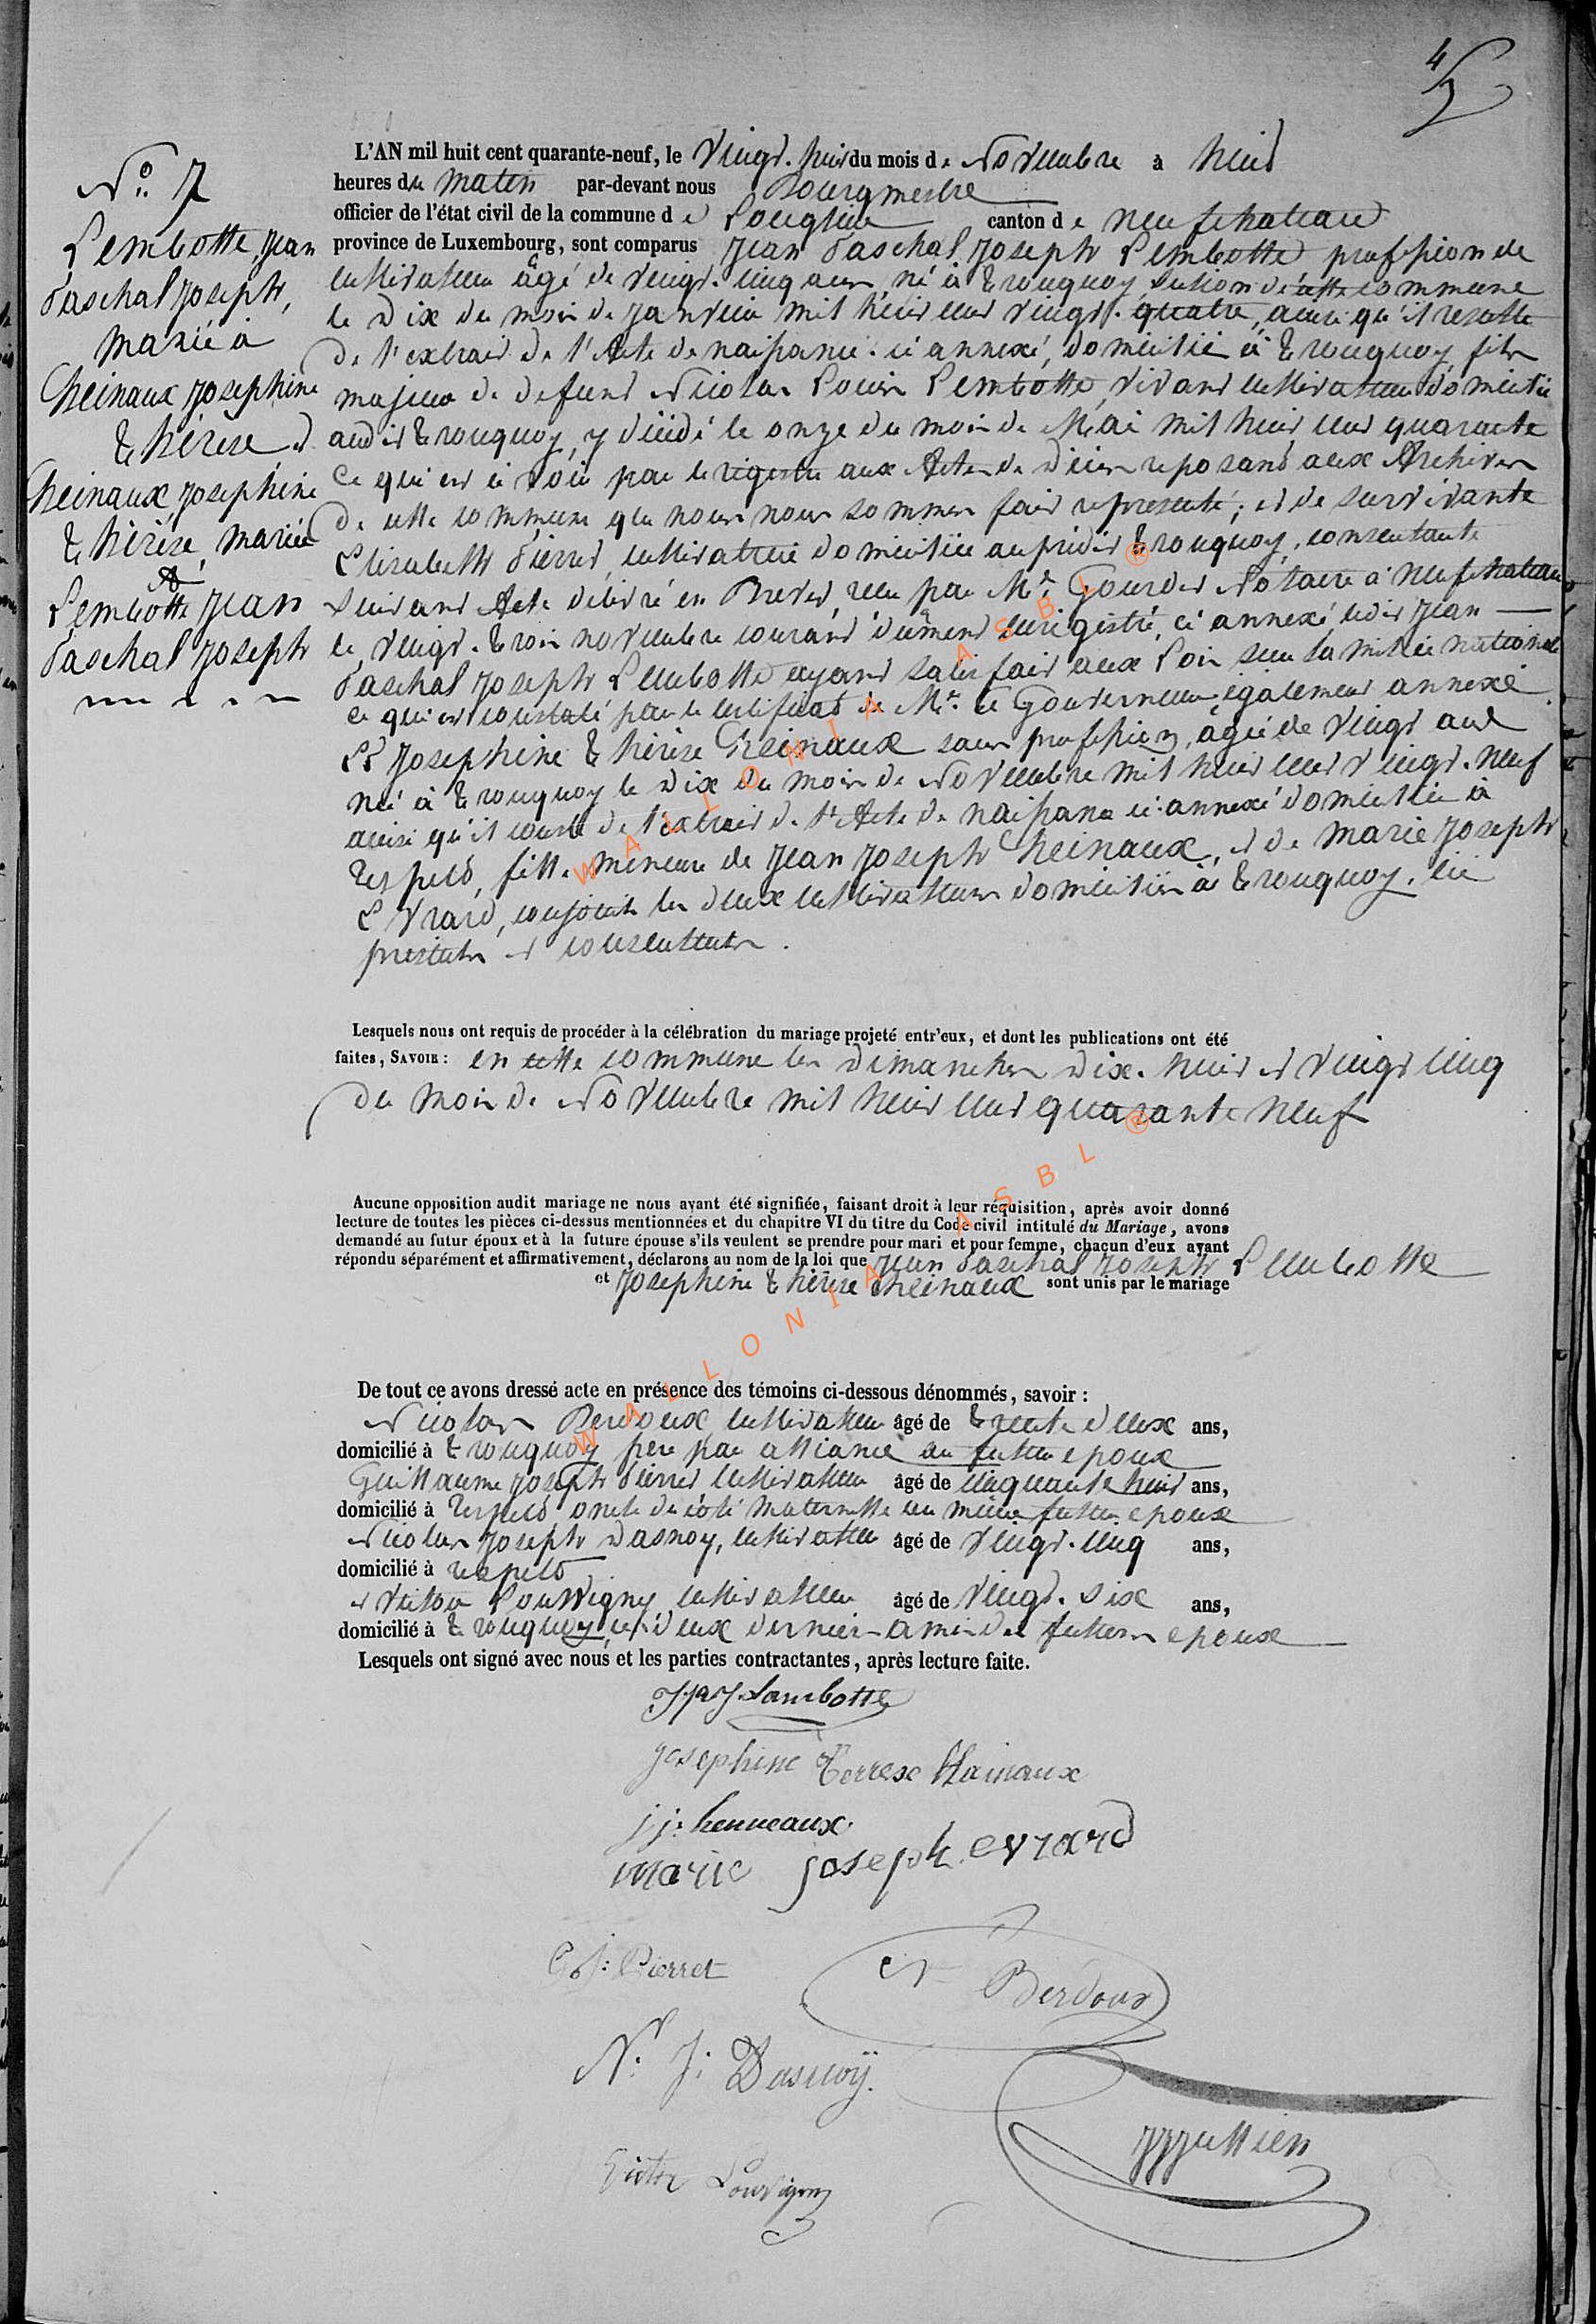 4
5
N.° 7
Lembotte, Jean
Paschal Joseph,
marié à
Cheinaux Josephine
Thérèse. et
Cheinaux, Josephine
Thérèse, mariée
A
Lembotte Jean
Paschal Joseph
L'AN mil huit cent quarante-neuf, le Vingt. huit du mois de Novembre à huit
heures du matin par-devant nous Bourgmestre
officier de l'état civil de la commune de Longlier canton de Neufchateau
province de Luxembourg, sont comparus Jean Paschal Joseph Lembotte profession de
cultivateur âgé de vingt. cinq ans, né à Tronquoy, section de cette commune
le dix du mois de Janvier mil huit cent vingt. quatre, ainsi qu'il resulte
de l'extrait de l'Acte de naissance ci annexé, domicilié à Tronquoy fils
majeur de defunt Nicolas Louis Lembotte, vivant cultivateur domicilié
audit Tronquoy, y décédé le onze du mois de Mai mil huit cent quarante
ce qui est ici voir par le registre aux Actes de décès reposant aux Archives
de cette commune que nous nous sommes fait representé; et de survivante
Elisabeth Pierret, cultivatrice domiciliée au predit Tronquoy, consentante
suivant Acte délivré en Brevet, reçu par Mr. Gourdet Notaire à Neufchateau
le, vingt. trois novembre courant dûment enrigistré, ci annexé, ledit Jean
Paschal Joseph Lembotte ayant satisfait aux Lois sur la milice nationale
ce qui est constaté par le certificat de Mr. le Gouverneur également annexé.
Et Josephine Thérèse Cheinaux sans profession, âgée de vingt ans
née à Tronquoy le dix du mois de Novembre mil huit cent vingt. neuf
ainsi qu'il conste de l'extrait de l'Acte de naissance ci-annexé domiciliée à
Respelt, fille mineure de Jean Joseph Cheinaux, et de Marie Joseph
Evrard, conjoints les deux cultivateurs domiciliés à Tronquoy. ici
presents et consentants.
Lesquels nous ont requis de procéder à la célébration du mariage projeté entr'eux, et dont les publications ont été
faites, SAVOIR: en cette commune les dimanches dix. huit et vingt cinq
du mois de Novembre mil huit cent quarante neuf
Aucune opposition audit mariage ne nous ayant été signifiée, faisant droit à leur réquisition, après avoir donné
lecture de toutes les pièces ci-dessus mentionnées et du chapitre VI du titre du Code civil intitulé du Mariage, avons
demandé au futur époux et à la future épouse s'ils veulent se prendre pour mari et pour femme, chacun d'eux ayant
répondu séparément et affirmativement, déclarons au nom de la loi que Jean Paschal Joseph Lembotte
et Josephine Thérèse Cheinaux sont unis par le mariage
De tout ce avons dressé acte en présence des témoins ci-dessous dénommés, savoir :
Nicolas Berdoux, cultivateur âgé de trente deux ans,
domicilié à Tronquoy frere par alliance au futur epoux
Guillaume Joseph Pierret cultivateur âgé de cinquante huit ans,
domicilié à Respelt oncle du côté maternelle au même futur epoux
Nicolas Joseph Dasnoy, cultivateur âgé de vingt. cinq ans,
domicilié à respelt
et Victor Louvigny cultivateur âgé de vingt. six ans,
domicilié à Tronquoy, ces deux derniers amis des futurs epoux
Lesquels ont signé avec nous et les parties contractantes, après lecture faite.
J.pa J. Lambotte
Josephine Terrese Hainaux
j j. henneaux.
marie joseph. evrard
G. J: Pierret
N Berdoux
N. J: Dasnoÿ.
Victor Louvigny
WALLONIA ASBL ®
WALLONIA ASBL ®